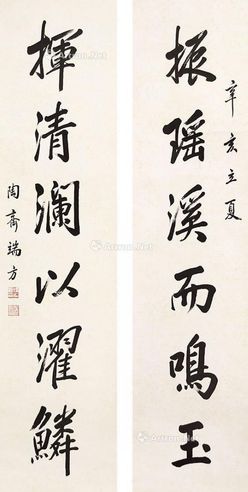 辛亥立夏
振瑶溪而鳴玉
揮清瀾以濯鱗
陶齋端方